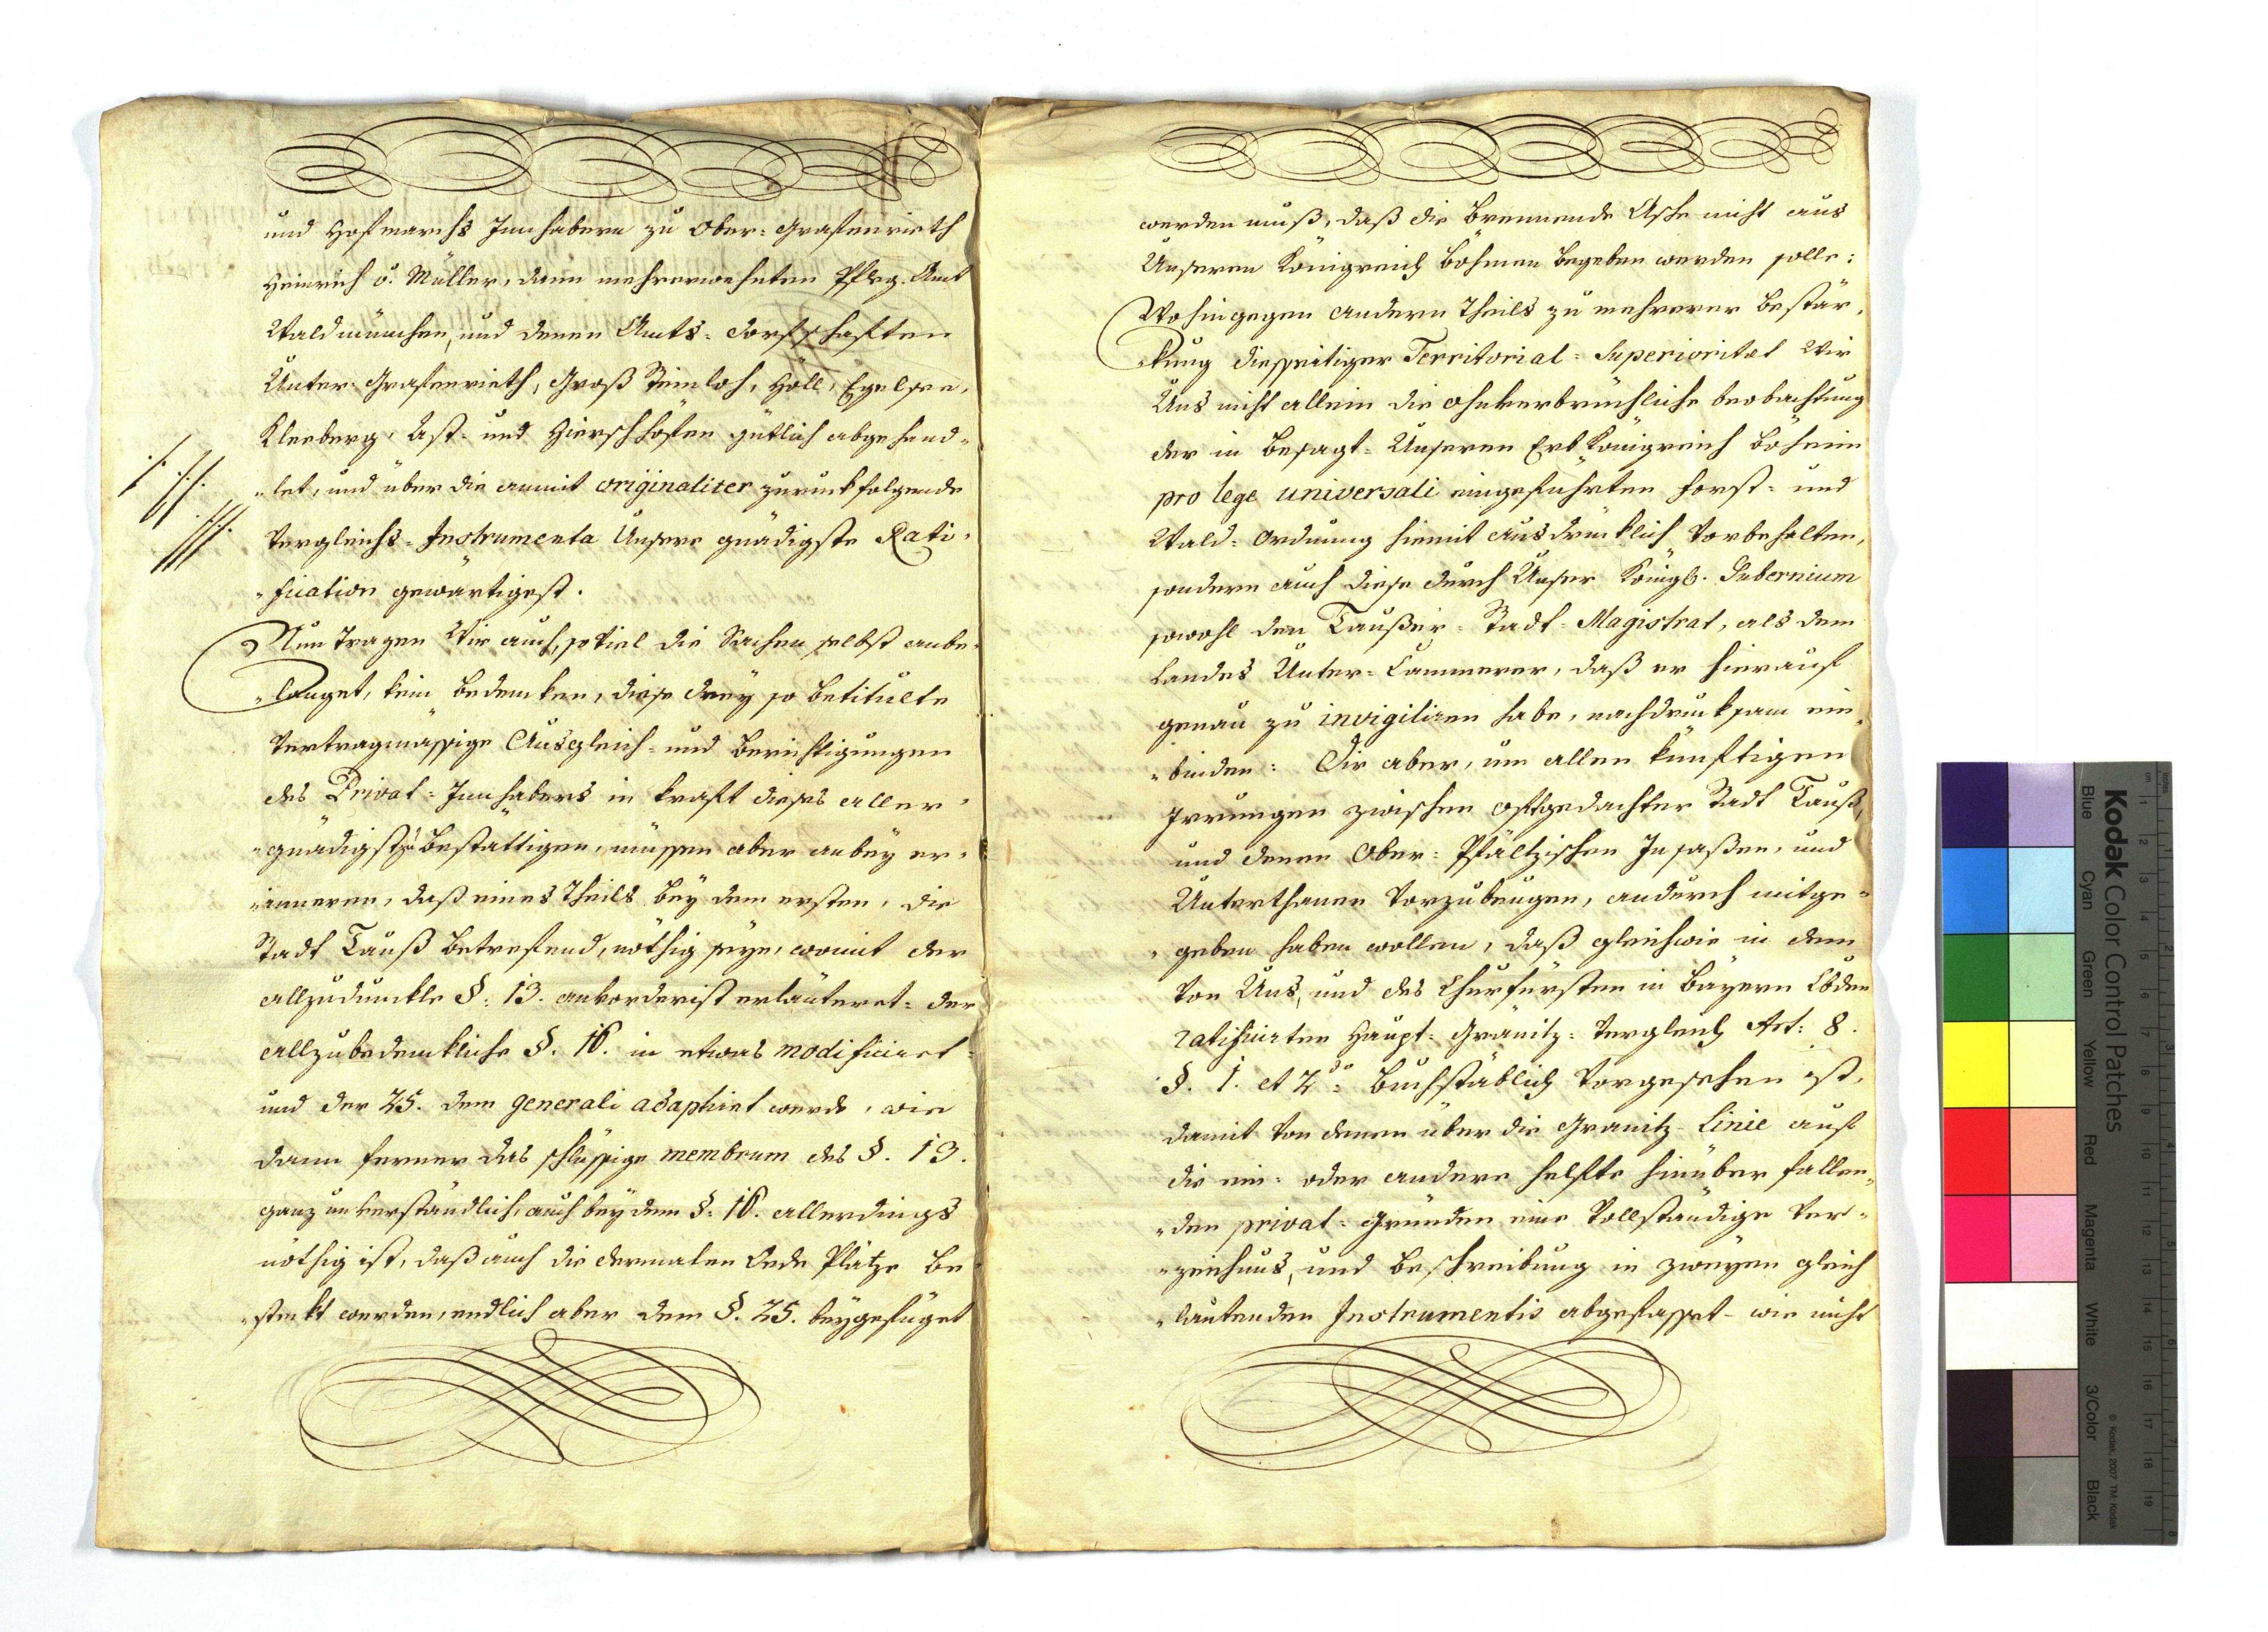 und Hofmarchs Innhabern zu Ober-Grafenrieth
Heinrich v. Müller, dann mehrerwehnten Pfleg-Amt
Waldmünchen, und denen Amts-Dorfschafften
Unter-Grafenrieth, Groß Steinloh, Höll, Egelsee,
Kleeberg, Ast- und Hierschhöfen gütlich abgehand-
-let, und über die anmit originaliter zuruckfolgende
/. //. ///.
Vergleichs-Instrumenta Unsere gnädigste Rati-
-fication gewärtigest.
Nun tragen Wir auch, so viel die Sachen selbst anbe-
-langet, kein bedencken, diese drey so betitulte
Vertragmässige Ausgleich- und Berichtigungen
des Privat-Innhabers in krafft dieses aller-
-gnädigst zu bestättigen, müssen aber anbey er-
-inneren, daß eines Theils bey dem ersten, die
Stadt Tauß betrefend, nöthig seye, womit der
allzudunckle §. 13. anvorderist erläuteret- der
allzubedenckliche §. 16. in etwas modificiret-
und der 25. dem generali adaptiret werde, wie
dann ferner das schlüssige membrum des §. 13.
ganz unverständlich, auch bey dem §. 16. allerdings
nöthig ist, daß auch die dermalen Oede Plätze be-
-steckt werden, endlich aber dem §. 25. beygefüget
werden muß, daß die brennende Asche nicht aus
Unseren Königreich Böhmen begeben werden solle:
Wohingegen andern Theils zu mehrerer bestär-
-kung diesseitiger Territorial-Superioritæt Wir
Uns nicht allein die ohnverbrüchliche beobachtung
der in besagt-Unseren Erb Königreich Böheim
pro lege universali eingeführten Forst- und
Wald-Ordnung hiemit ausdrücklich vorbehalten,
sondern auch diese durch Unser Königl. Gubernium
sowohl den Taußer-Stadt-Magistrat, als dem
Landes Unter-Cammerer, daß er hierauf
genau zu invigiliren habe, nachdrucksam ein-
-binden: Dir aber, um allen künfftigen
Irrungen zwischen offtgedachter Stadt Tauß,
und denen Ober-Pfältzischen Insaßen, und
Unterthanen vorzubeugen, andurch mitge-
-geben haben wollen, daß gleichwie in dem
von Uns, und des Churfürsten in Bayern Lbden
ratificirten Haupt-Gränitz-Vergleich Art: 8.
§. 1. et 2do: buchstäblich vorgesehen ist,
damit von denen über die Granitz-Linie auf
die ein- oder andere helfte hinüber fallen-
-den privat-Gründen eine vollständige Ver-
-zeichnus, und beschreibung in zweyen gleich
-lautenden Instrumentis abgefasset- wie nicht
Kodak Color Control Patches
Blue Cyan Green Yellow Red Magenta White 3/Color Black
© Kodak, 2007 TM: Kodak